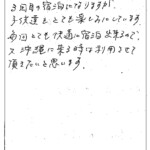 3回目の宿泊になりますが、
子供達もとても楽しみにしています。
毎回とても快適に宿泊出来るので、
又沖縄に来る時は利用させて
頂きたいと思います。